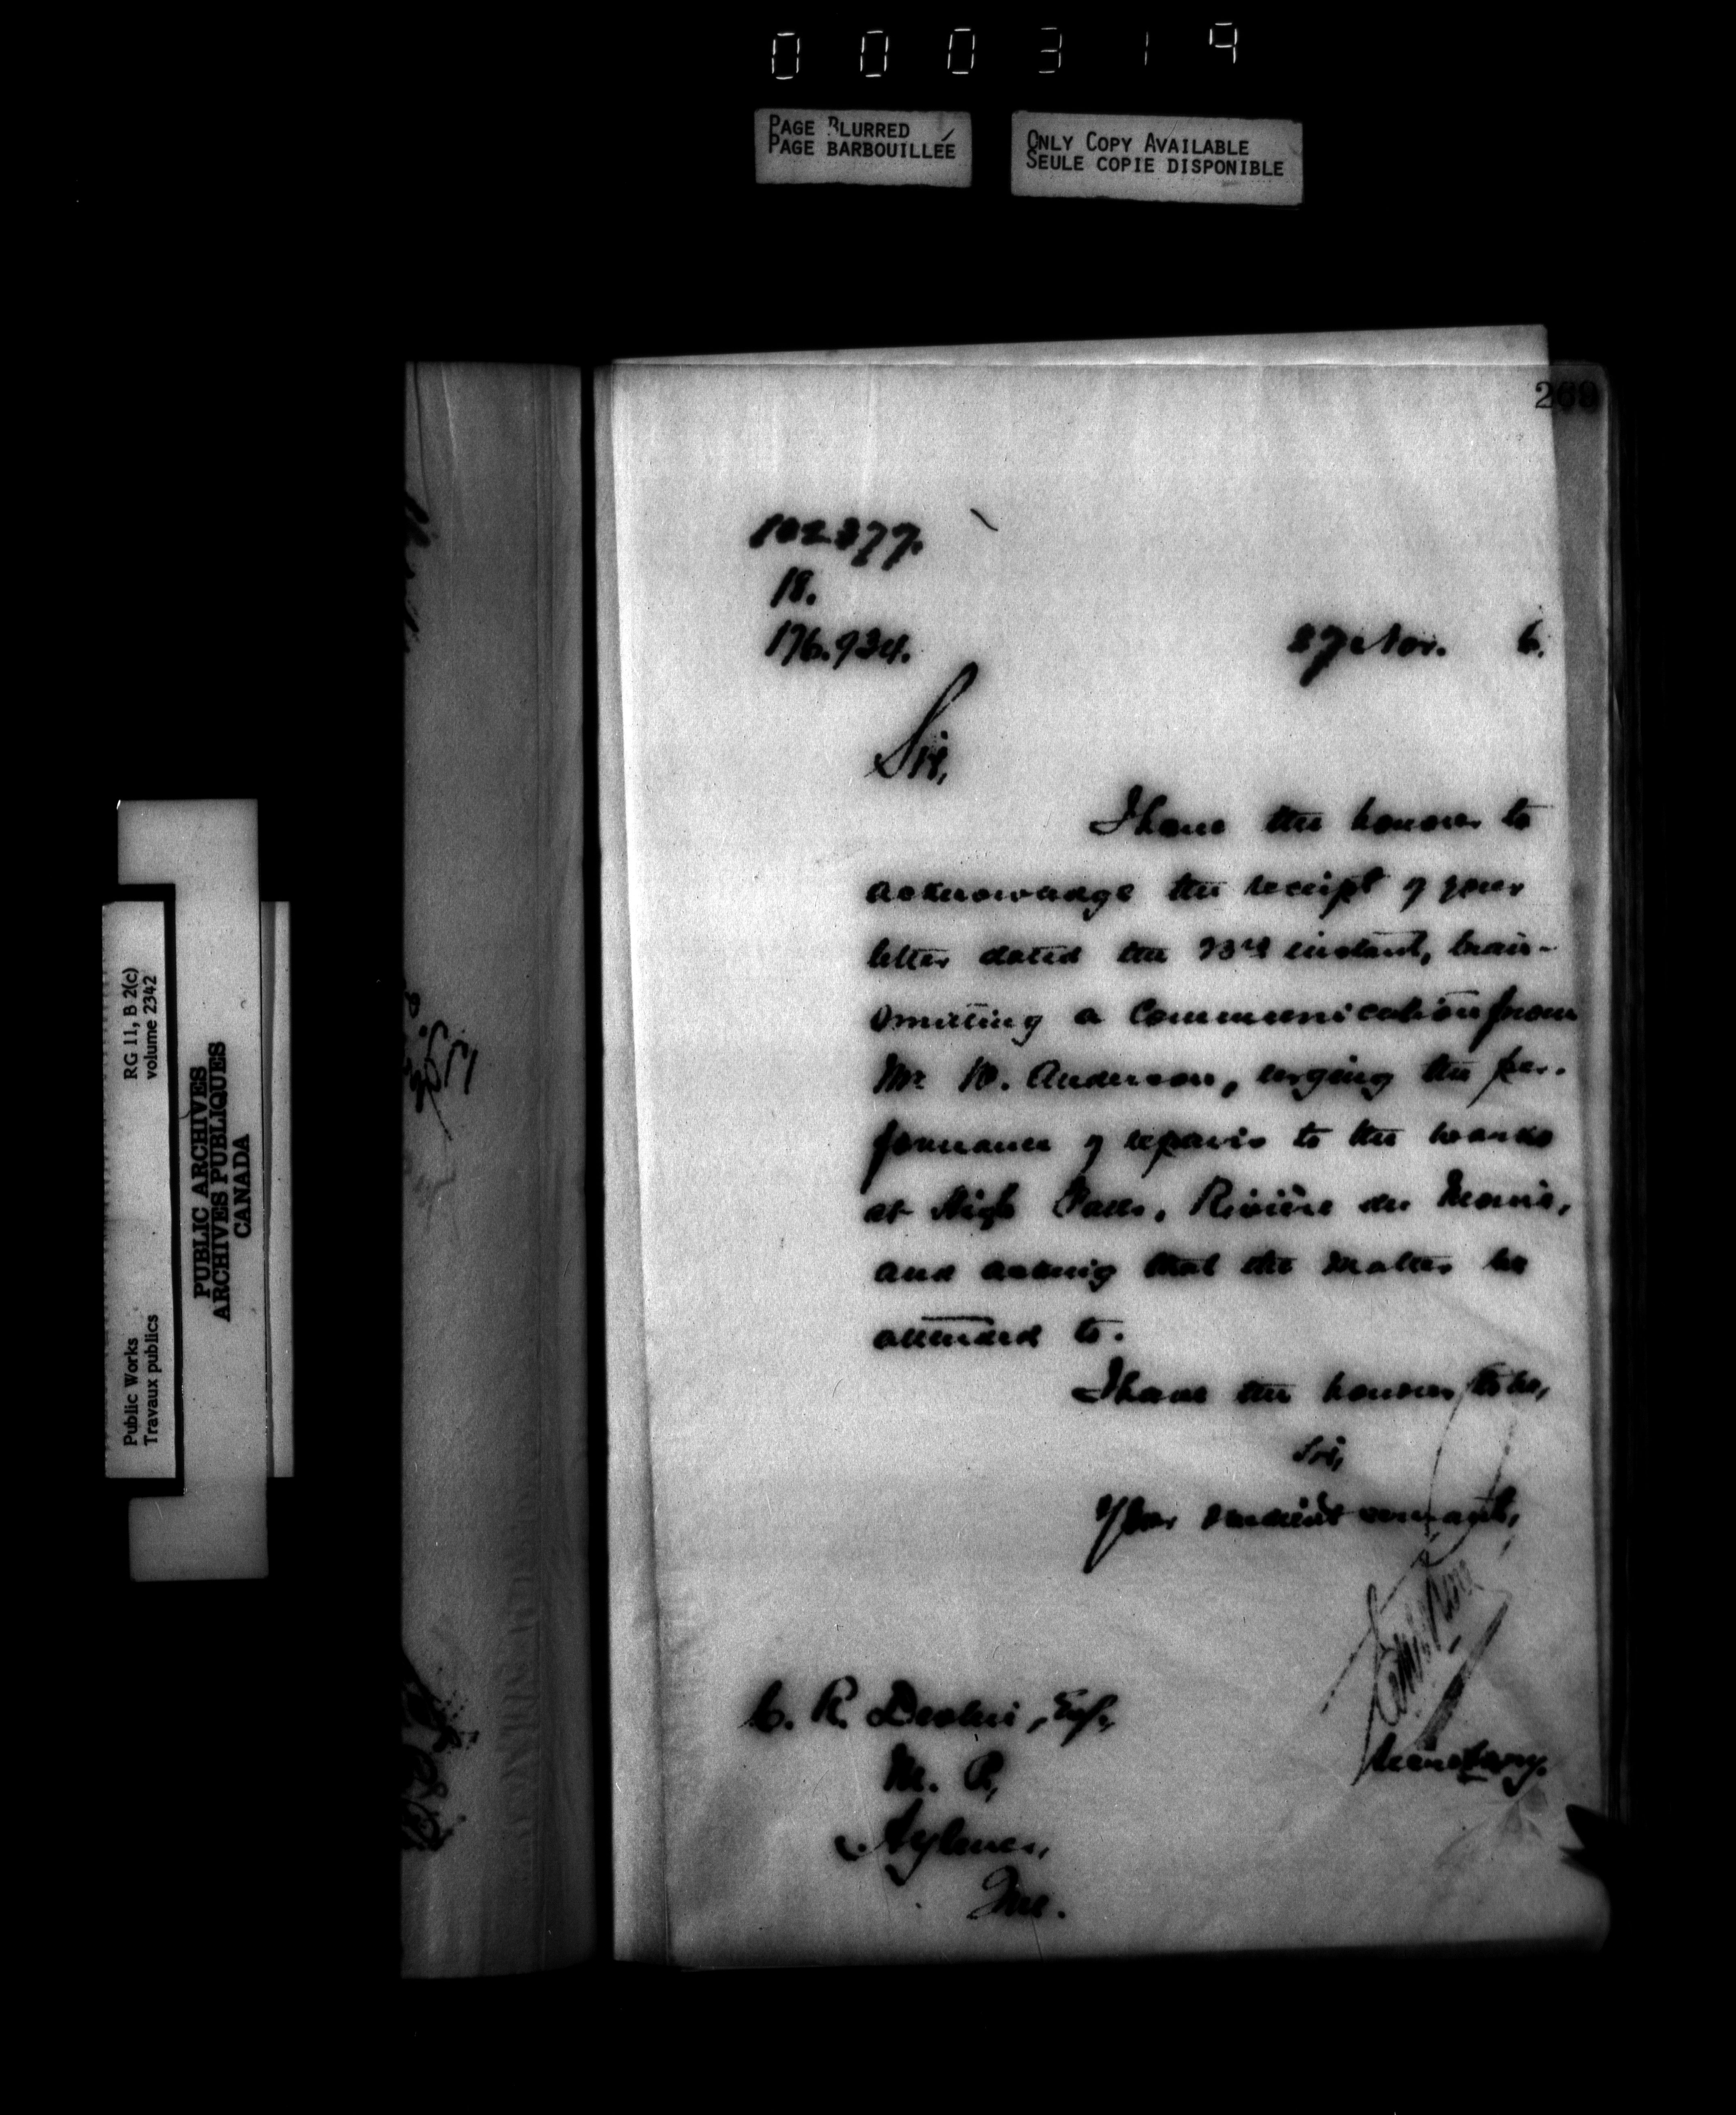 000319
PAGE BLURRED
PAGE BARBOUILLÉE
ONLY COPY AVAILABLE
SEULE COPIE DISPONIBLE
269
102377.
18.
176.934.
27 Nov. 6.
Sir,
I have the honour to
acknowledge the receipt of your
letter dated the 23rd instant, trans-
mitting a communication from
Mr W. Anderson, urging the per-
formance of repairs to the works
at High Falls, Rivière du Lièvre,
and asking that the matter be
attended to.
I have the honour to be,
Sir,
Your obedient servant,
Secretary.
C. R. Devlin, Esq.,
M. P.,
Aylmer,
Que.
RG 11, B 2(c)
volume 2342
Public Works
Travaux publics
PUBLIC ARCHIVES
ARCHIVES PUBLIQUES
CANADA